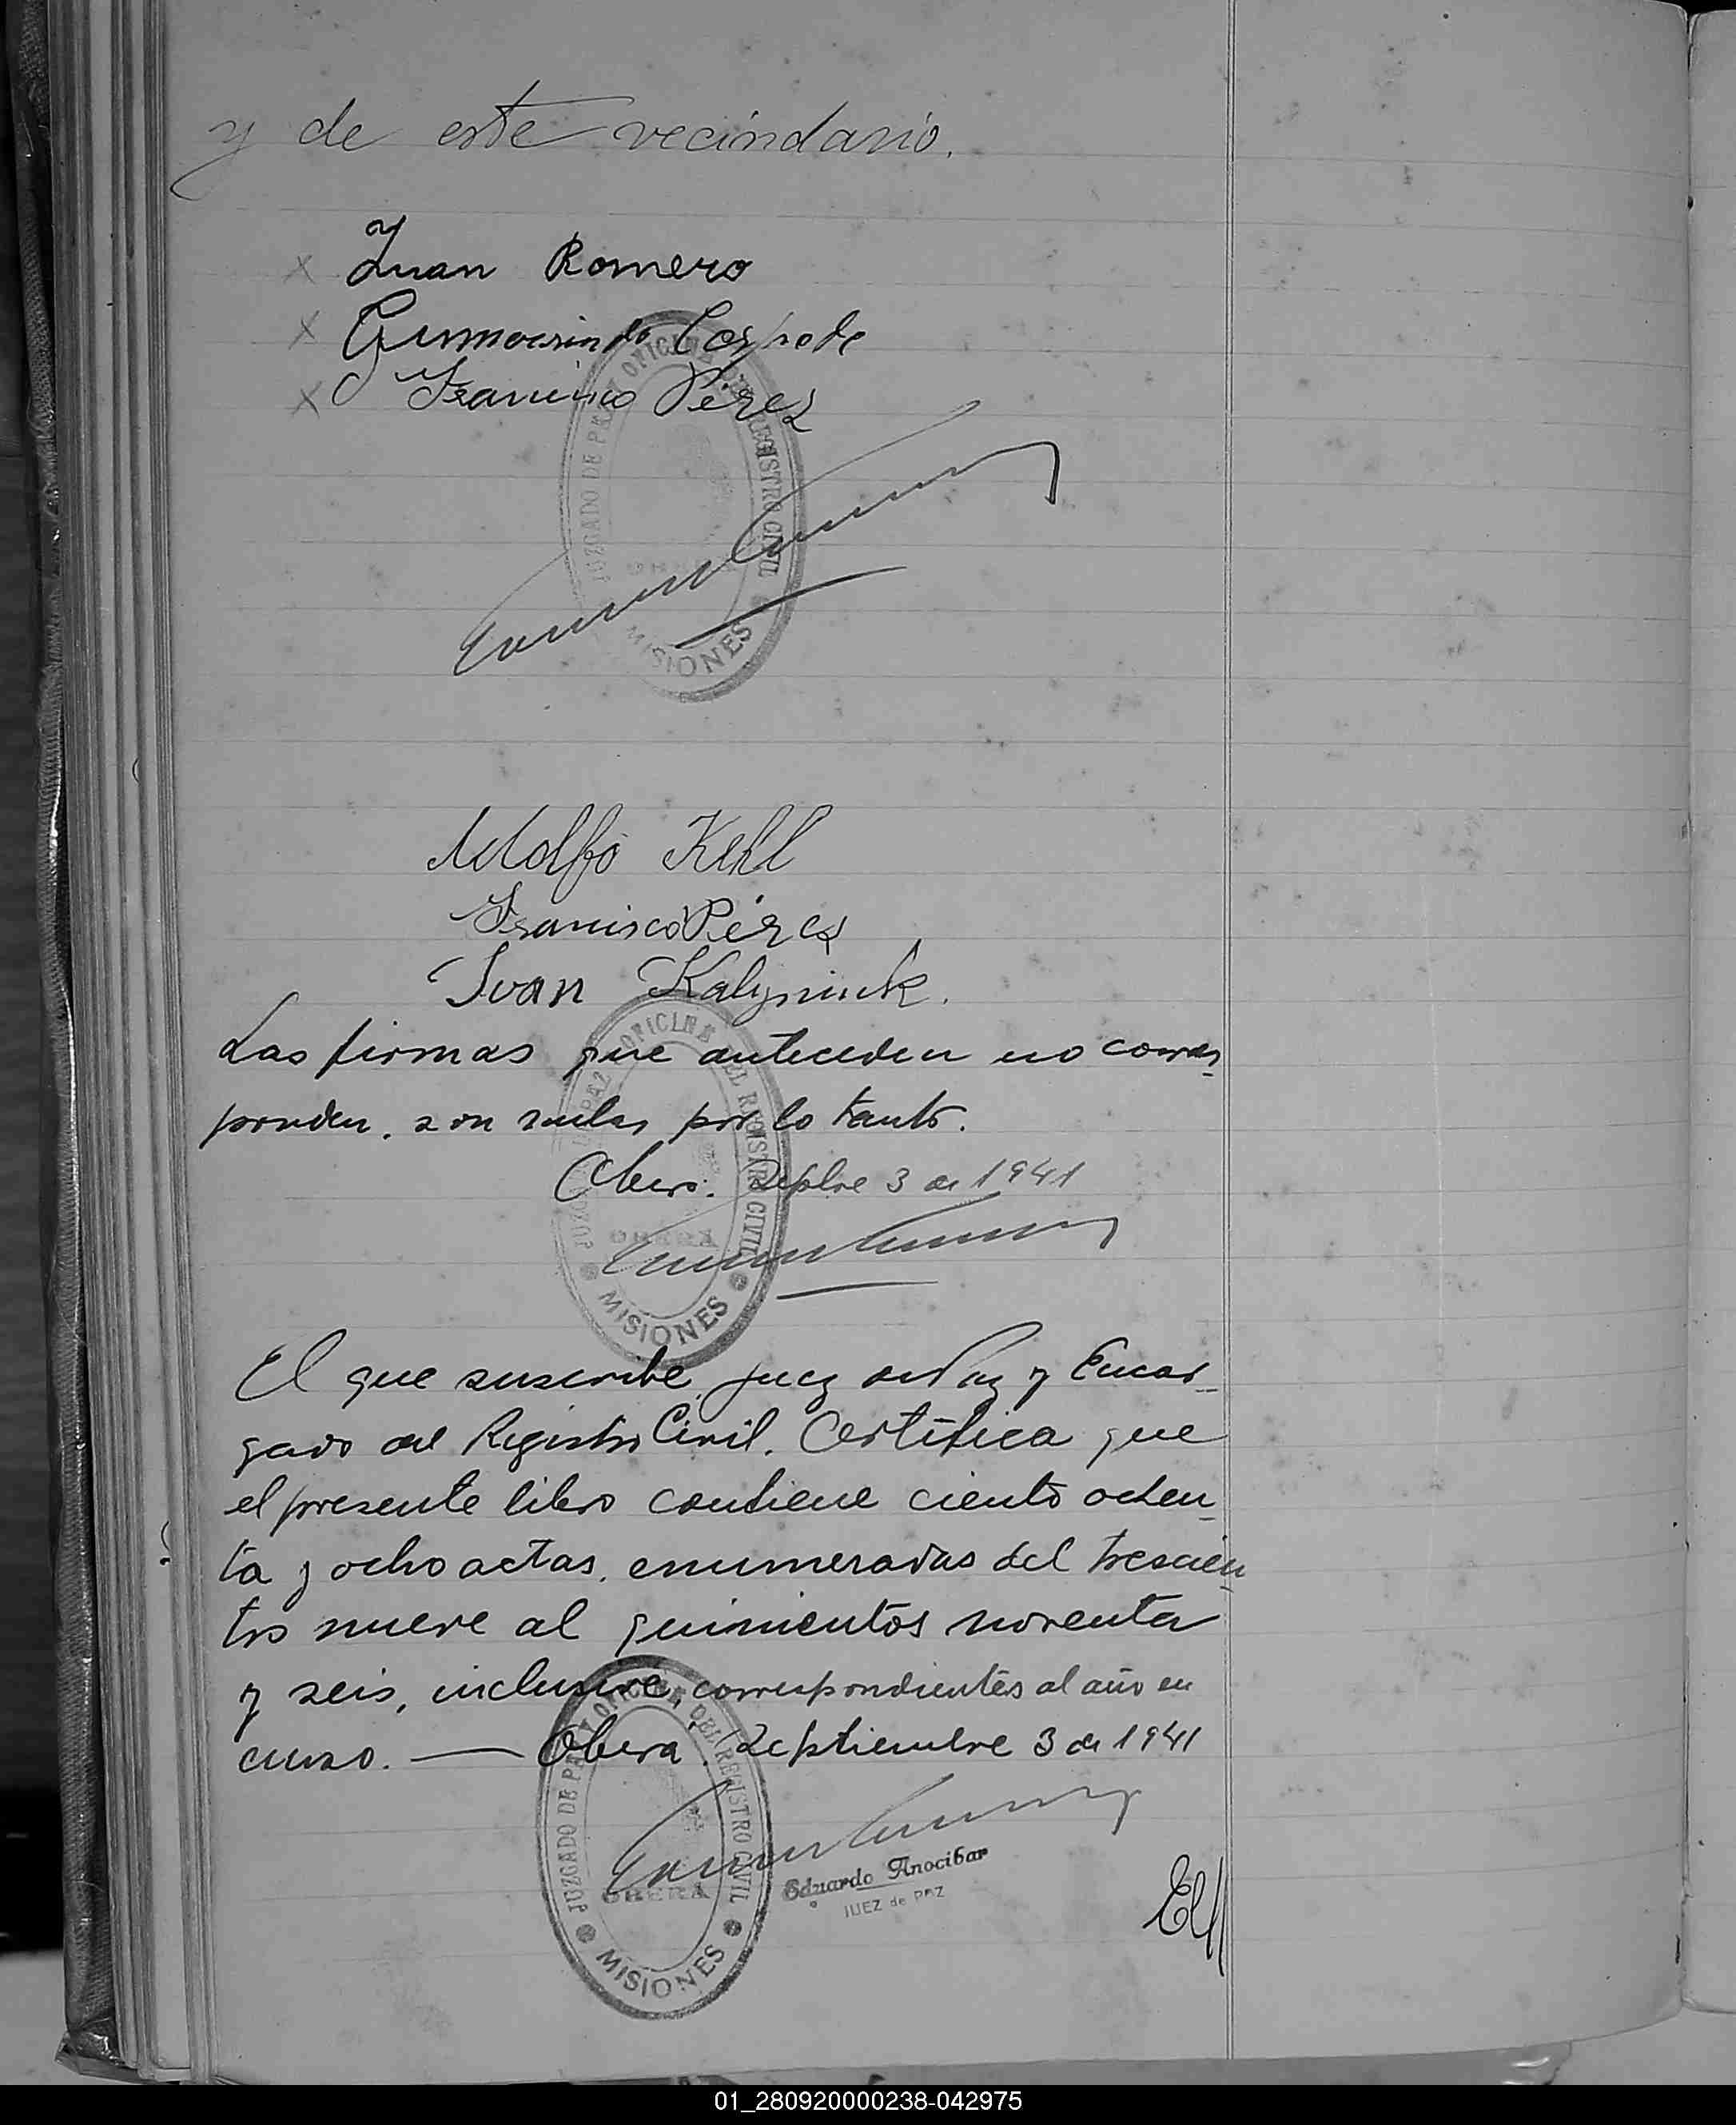 y de este vecindario.
Juan Romero
Gumercindo Cespede
Francisco Pérez
JUZGADO DE PAZ Y OFICINA DEL REGISTRO CIVIL
OBERÁ
MISIONES
Adolfo Kehl
Francisco Pérez
Ivan Kalyniuk.
Las firmas que anteceden no corres
ponden. son nulas por lo tanto.
Oberá. Septbre 3 de 1941
JUZGADO DE PAZ Y OFICINA DEL REGISTRO CIVIL
OBERÁ
MISIONES
El que suscribe, Juez de Paz y Encar-
gado del Registro Civil. Certifica que
el presente libro contiene ciento ochen
ta y ocho actas, enumeradas del trescien
tos nueve al quinientos noventa
y seis, inclusive, correspondientes al año en
curso. — Oberá. Septiembre 3 de 1941
JUZGADO DE PAZ Y OFICINA DEL REGISTRO CIVIL
OBERÁ
MISIONES
Eduardo Anocibar
JUEZ de PAZ
01_280920000238-042975